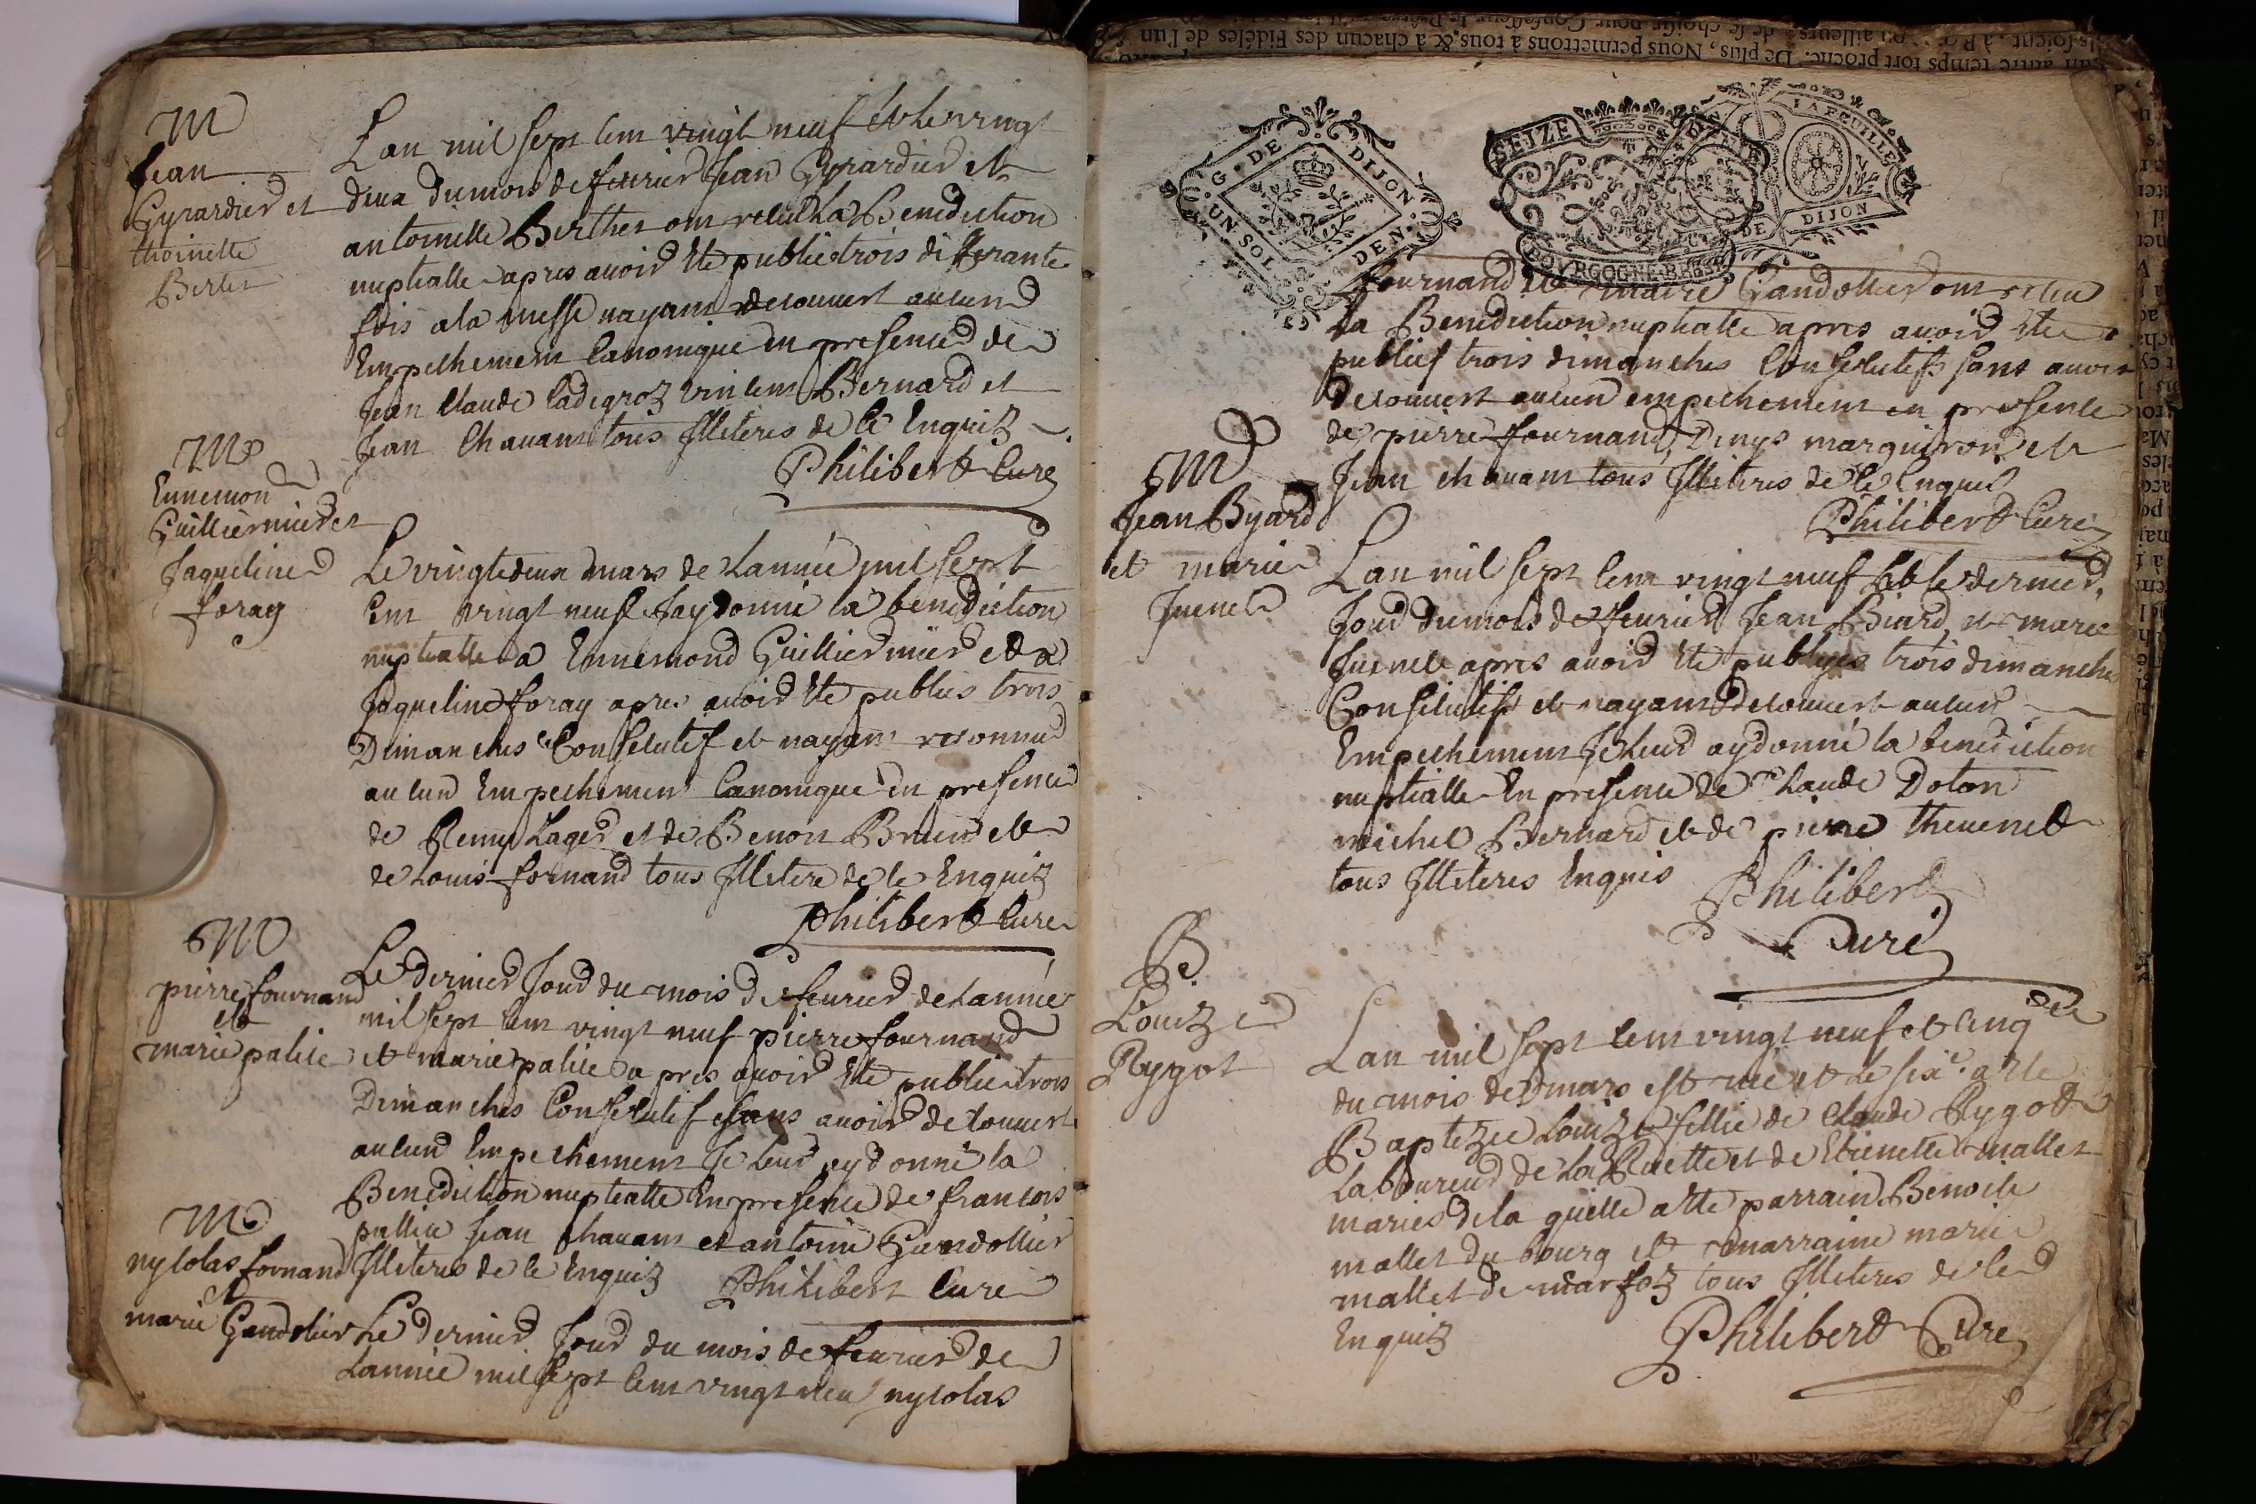 M
Jean
Gyrardier et
thoinette
Berthet
Lan mil sept cent vingt neuf et le vingt
deux du mois de feurier Jean Gyrardier et
antoinette Berthet ont recu La Benediction
nuptialle apres auoir ete publie trois differante
fois a la messe nayant decouuert aucund
Empechement Canonique en presence de
Jean Claude Cadegroz vincent Bernard et
Jean Chauant tous Illiteres de ce Enquiz
Philibert Cure
M
Ennemond
Guilliermier et
Jaqueline
foray
Le vingt deux mars de Lannée mil sept
cent vingt neuf Jay donné la benediction
nuptialle a Ennemond Guilliermier et a
Jaqueline foray apres auoir ete publies trois
Dimanches Consecutif et nayant reconnu
aucund Empechement Canonique en presence
de Remy Lager et de Benoit Brun et
de Louis fornand tous Illitere de ce Enquiz
Philibert Cure
M
pierre fournand
et
marie palice
Le dernier Jour du mois de feurier de Lannee
mil sept cent vingt neuf pierre fournand
et marie palice apres auoir ete publie trois
Dimanches Consecutif sans auoir decouuert
aucund Empechement Je Leur ay donné la
Benediction nuptialle En presence de francois
pallice Jean Chauant et antoine Gandollier
Illiteres de ce Enquiz Philibert Cure
M
nycolas fornand
et
marie Gandolier
Le dernier Jour du mois de feurier de
Lannée mil sept cent vingt neu nycolas
G. DE DIJON
UN SOL DEN.
SEIZE
BOURGOGNE BRESSE
LA FEUILLE
DE DIJON
fournand et marie Gandollier ont recu
La Benediction nuptialle apres auoir ete
publief trois dimanches Consecutifs sans auoir
decouuert aucun empechement en presence
de pierre fournand, Denys marguiron et
Jean chauant tous Illiteres de ce Enquis
Philibert Cure
M
Jean Byard
et marie
Juenet
Lan mil sept cent vingt neuf et le dernier
Jour du mois de feurier Jean Biard et marie
Juenet apres auoir ete publyes trois dimanche
Consecutifs et nayant decouuert aucun
Empechement Je Leur ay donné la benediction
nuptialle En presence de Claude Doton
michel Bernard et de pierre theuenet
tous Illiteres Enquis Philibert
Curé
B
Louize
Rygot
Lan mil sept cent vingt neuf et cinq
du mois de mars est née et le six a ete
Baptezée Louize fillie de Claude Rygot
Laboureur de La Ruette et de Etienette mallet
maries de la quelle a ete parrain Benoite
mallet du bourg et marraine marie
mallet de marfoz tous Illiteres de ce
Enquiz Philibert Cure